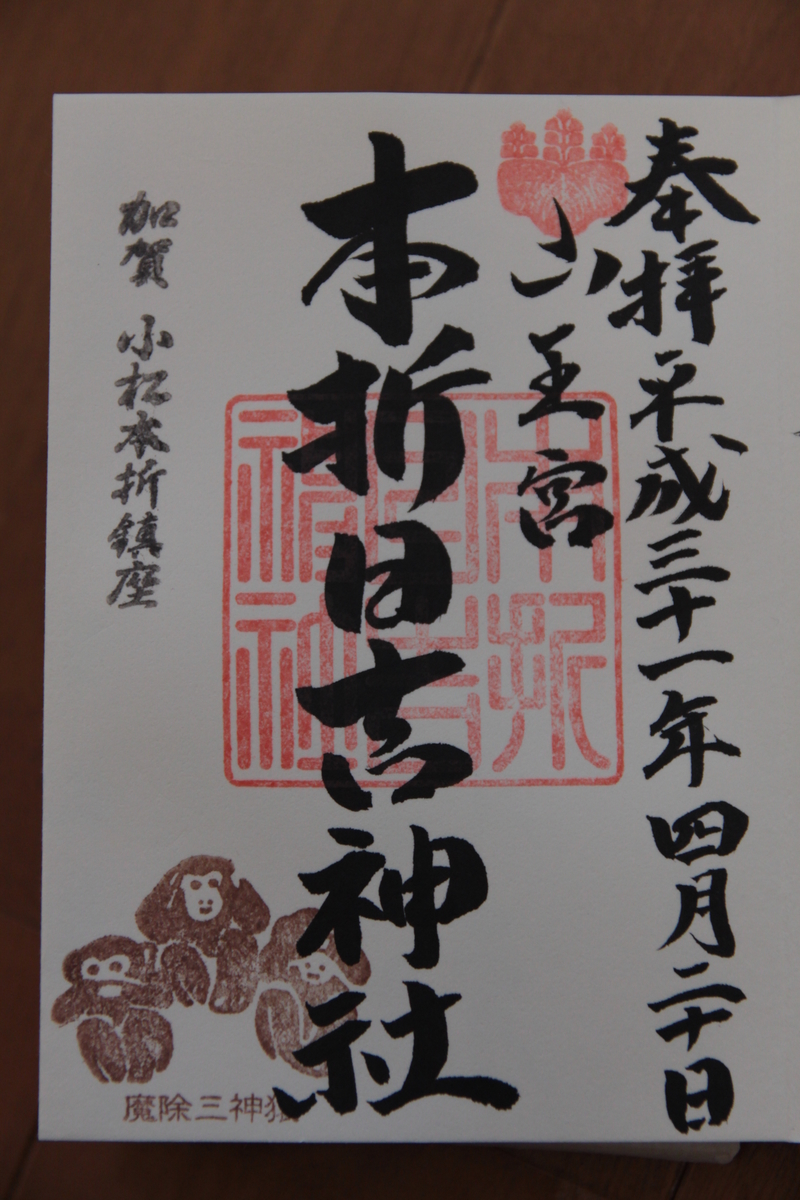 奉拝平成三十一年四月二十日
山王宮
本折日吉神社
加賀 小松本折鎮座
魔除三神猿